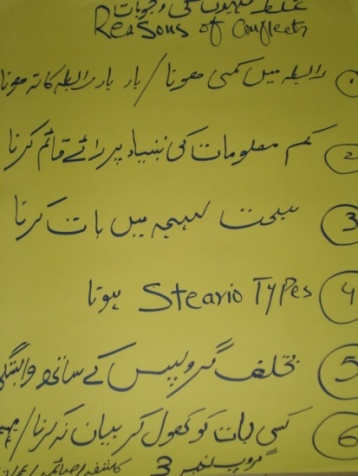 غلط فہمیوں کی وجوہات
Reasons of Conflects
① رابطہ میں کمی ہونا / بار بار رابطہ کا نہ ہونا
② کم معلومات کی بنیاد پر رائے قائم کرنا
③ سخت لہجہ میں بات کرنا
④ Steario Types ہونا
⑤ مختلف گروپس کے ساتھ وابستگی
⑥ کسی بات کو کھول کر بیان نہ کرنا /
گروپ نمبر 3